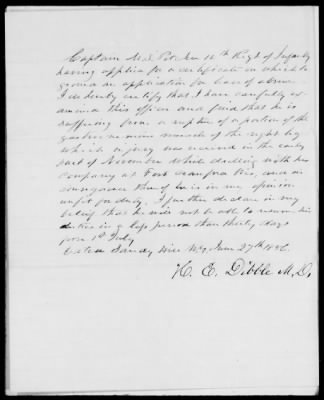 Captain M. S. Poe 11th Regt of Infantry
having applied for a certificate on which to
ground an application for leave of absence
I do hereby certify that I have carefully ex-
amined this officer and find that he is
suffering from a rupture of a portion of the
gastrocnemius muscle of the right leg
which injury was received in the early
part of November while drilling with his
company at Fort and in
consequence thereof he is in my opinion
unfit for duty. I further declare in my
belief that he will not be able to resume his
duties in a less period than thirty days
from 1st July
Dated Sandy Hill N.Y. June 27th
H. E. Dibble M.D.